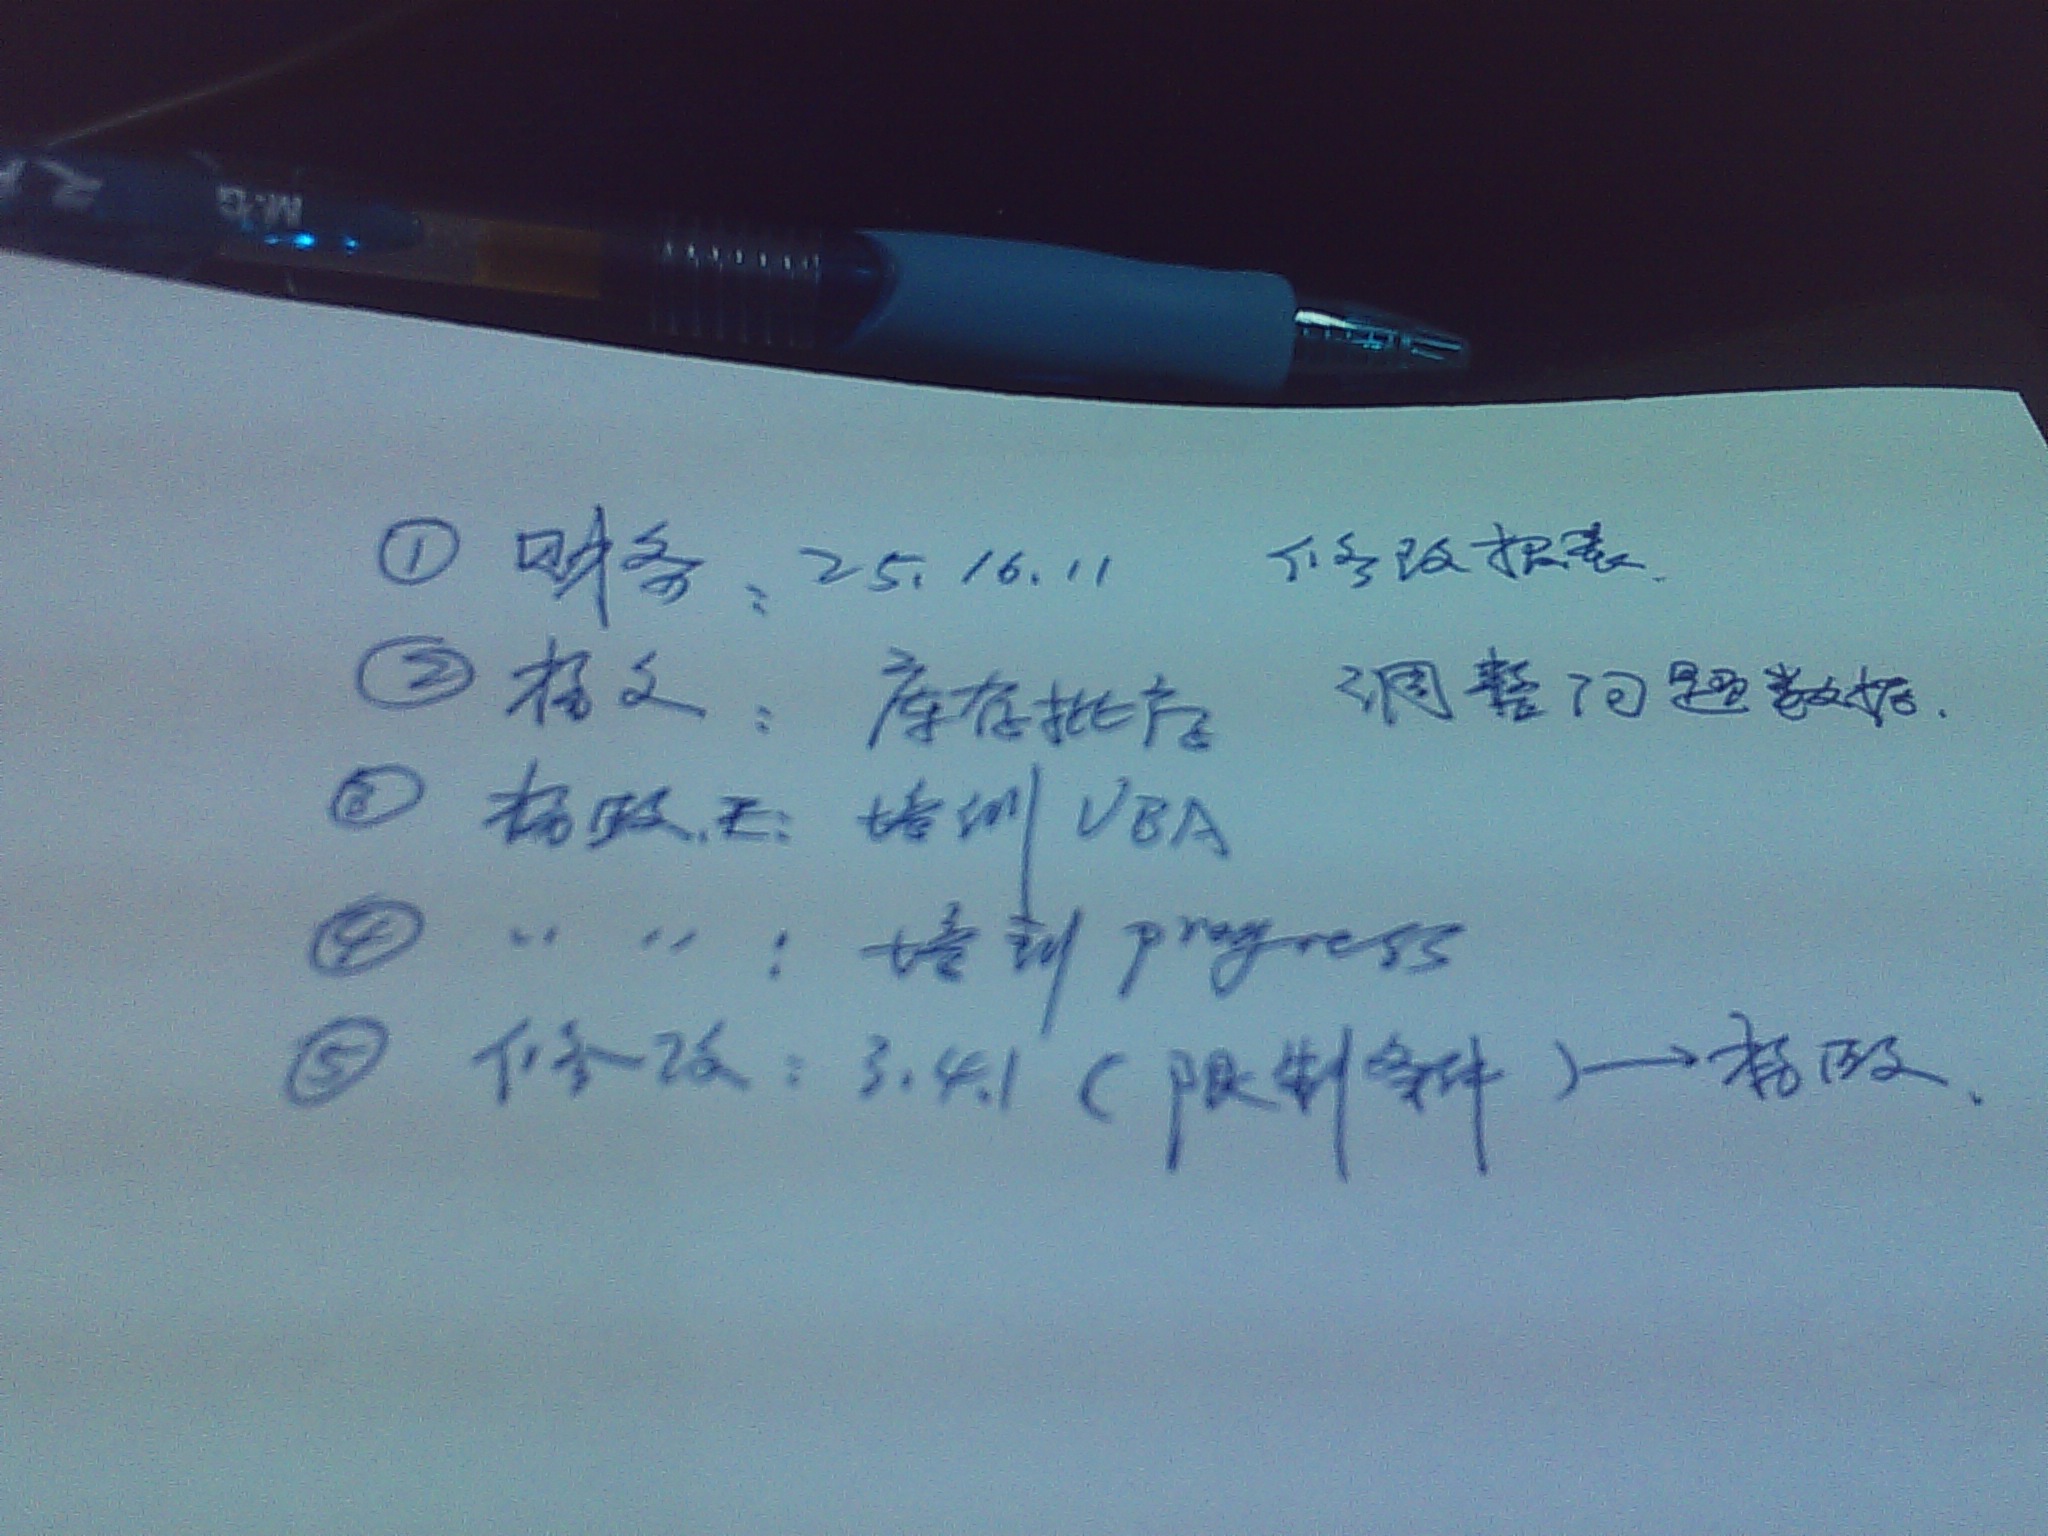 M&G
① 财务：25.16.11 修改报表.
② 杨文：库存批序 调整问题数据.
③ 培训VBA
④ 〃 〃：培训 progress
⑤ 修改：3.4.1（限制条件）→